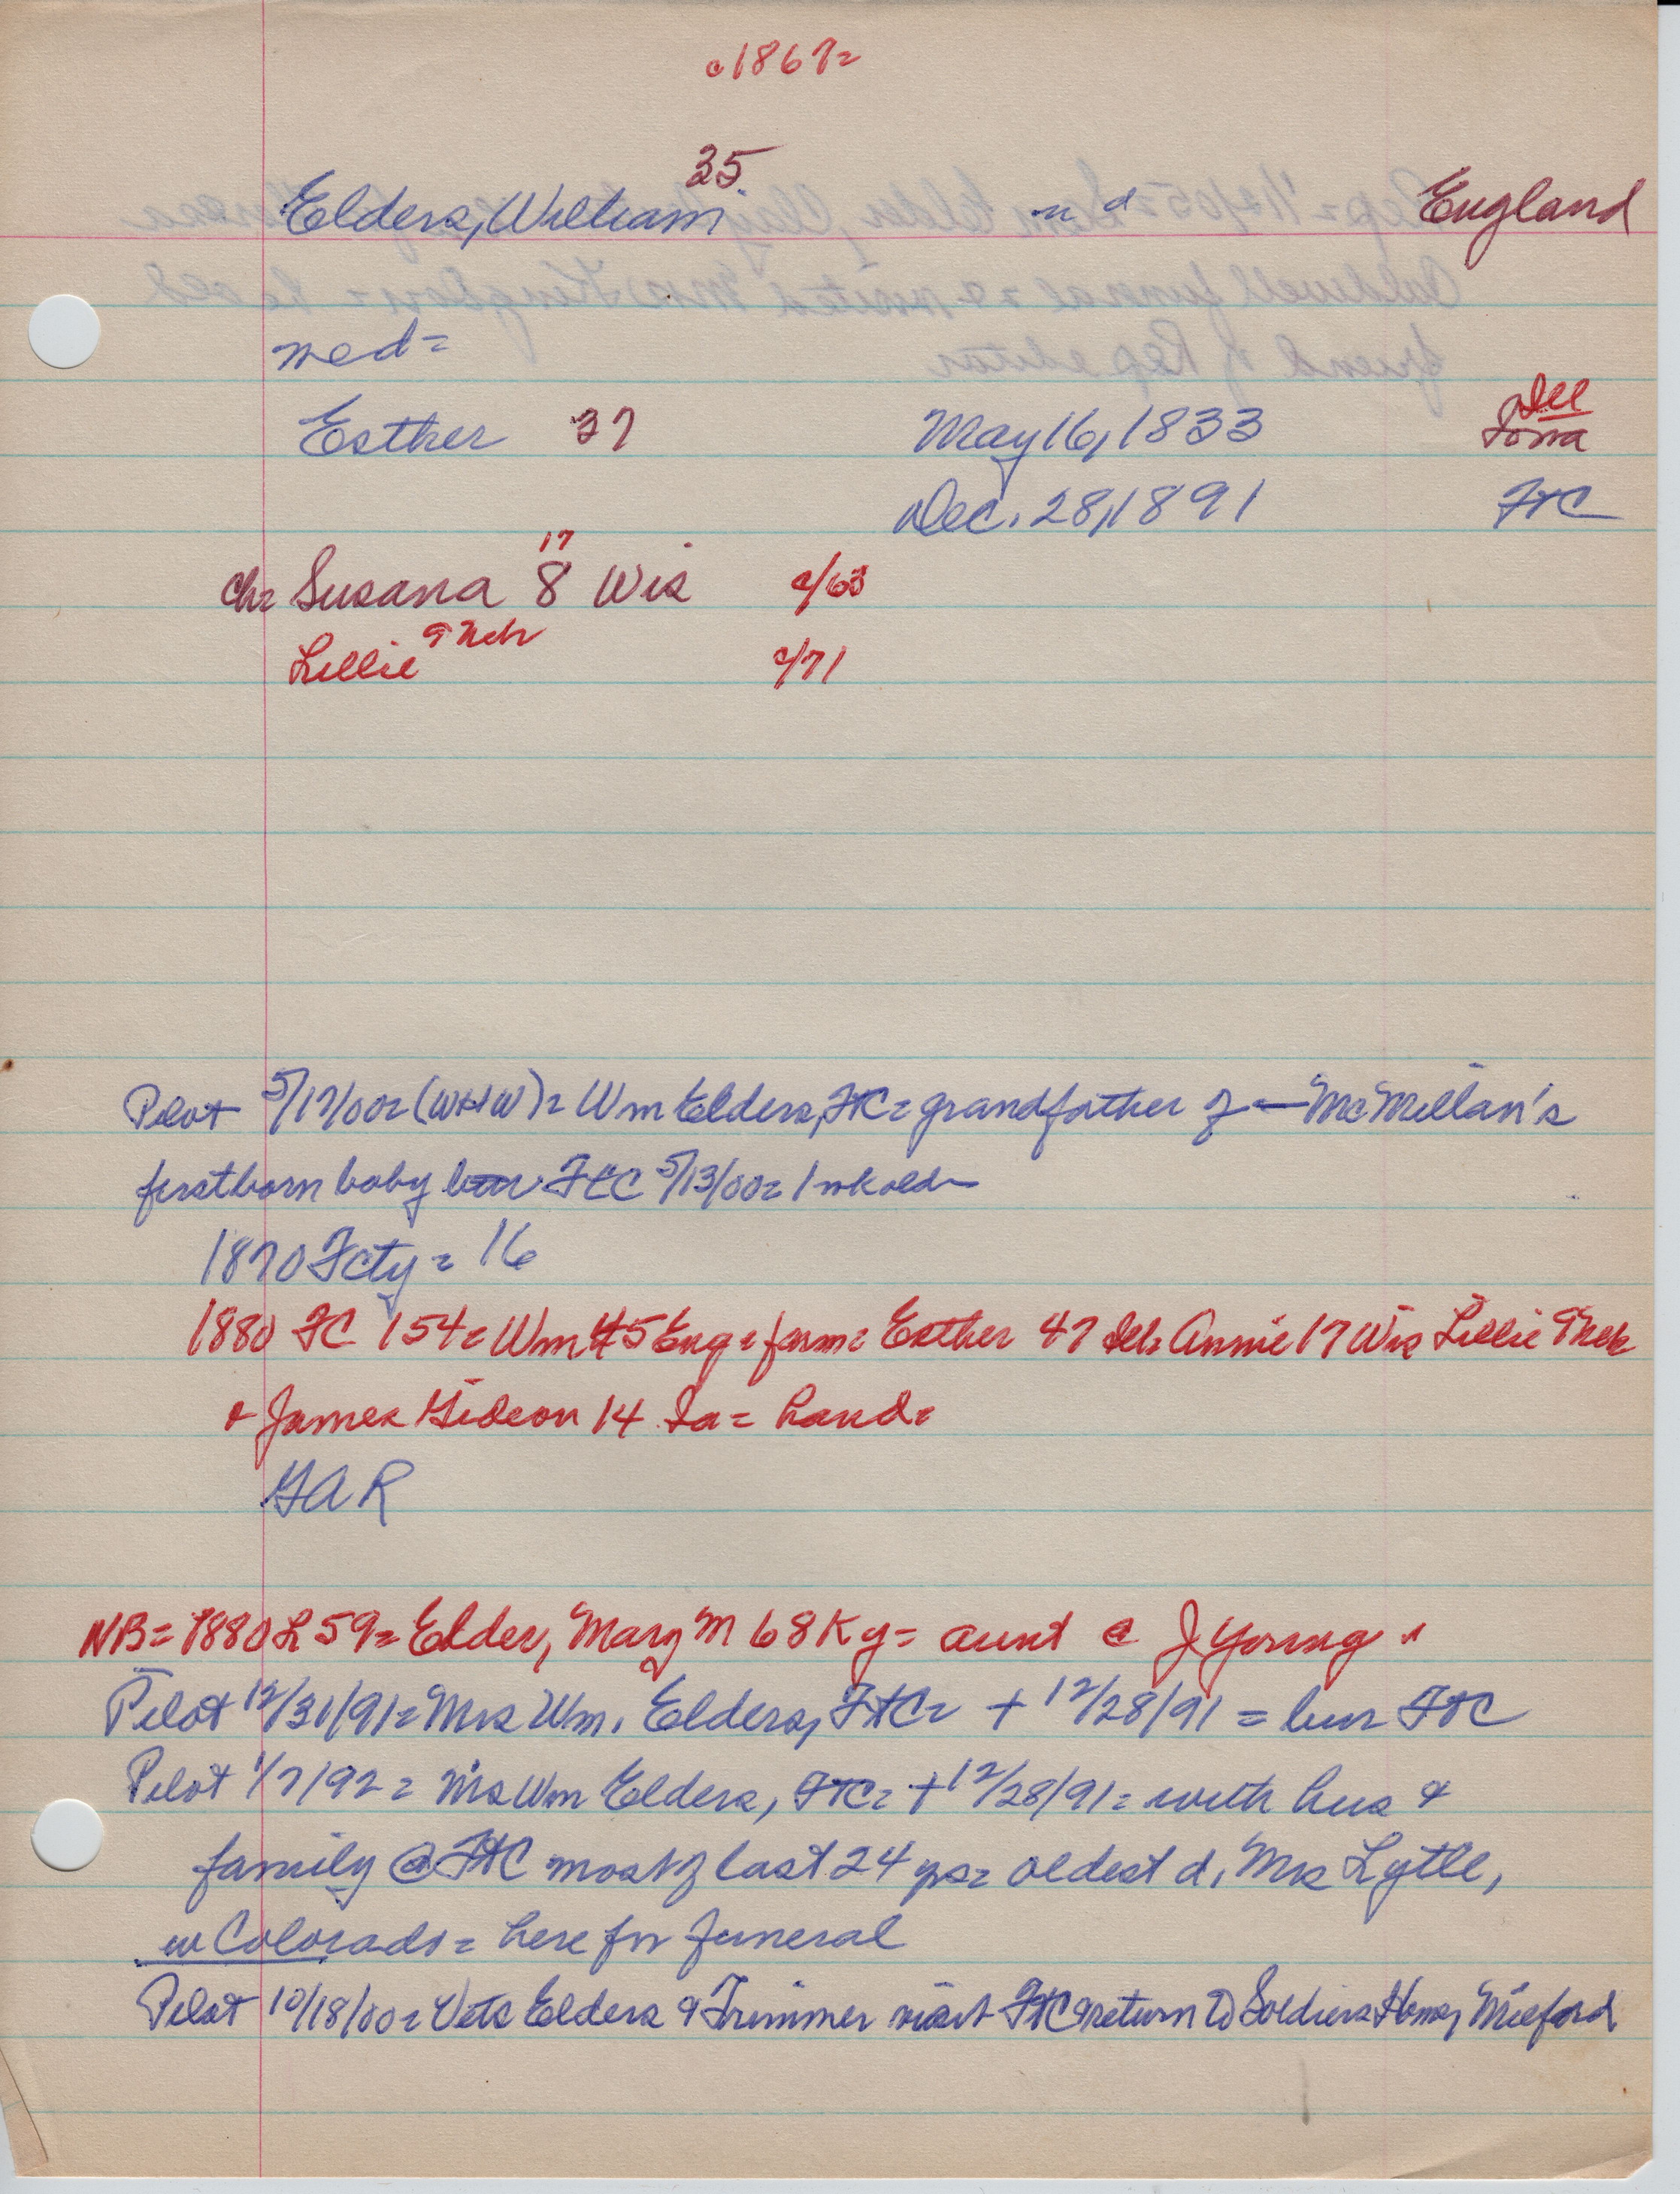 c1867=
35
Elders, William n d England
med=
Ill
Esther 37 May 16, 1833 Iowa
Dec. 28, 1891 FtC
17
Ch= Susana 8 Wis c/63
Lillie 9 Neb c/71
Pilot 5/17/00= (WHW)= Wm Elders, FtC= grandfather of — McMillan's
firstborn baby bur FtC 5/13/00= 1 wk old
1870 Fcty= 16
1880 FC 154= Wm 45 Eng= farm= Esther 47 Ill= Annie 17 Wis Lillie 9 Neb
+ James Gideon 14 Ia= hand=
GAR
NB= 1880 L 59= Elder, Mary M 68 Ky= aunt @ J Young
Pilot 12/31/91= Mrs Wm. Elders, FtC= + 12/28/91 = bur FtC
Pilot 1/7/92= Mrs Wm Elders, FtC= + 12/28/91= with hus &
family @ FtC most of last 24 yrs= oldest d, Mrs Lytle,
w Colorado= here for funeral
Pilot 10/18/00= Vets Elders & Trimmer visit FtC & return to Soldiers Home, Milford